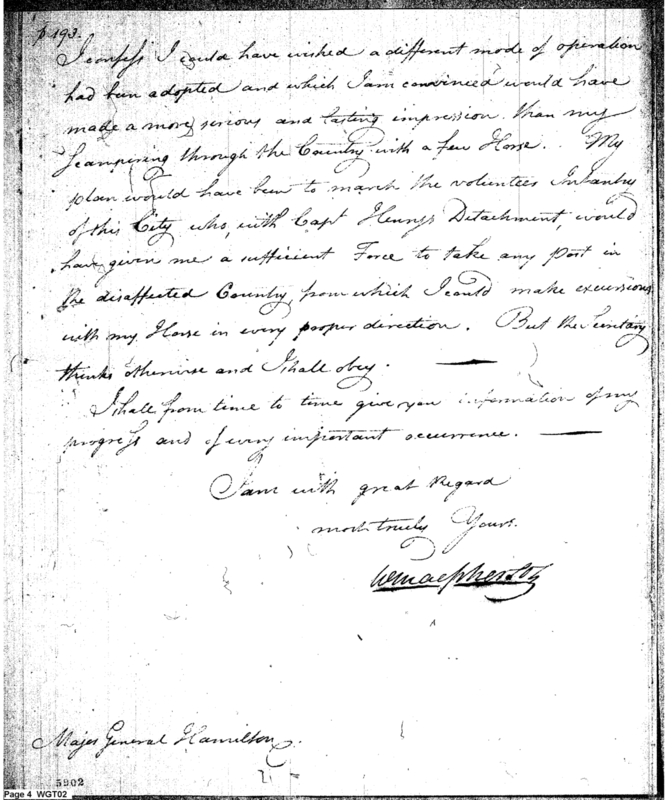 p 193.
I confess I could have wished a different mode of operation
had been adopted and which I am convinced would have
made a more serious and lasting impression than my
Scampering through the Country with a few Horse. My
plan would have been to march the volunteer Infantry
of this City who, with Capt Henry's Detachment, would
have given me a sufficient Force to take any Post in
the disaffected Country, from which I could make excursions
with my Horse in every proper direction. But the Secretary
thinks otherwise and I shall obey. —
I shall from time to time give you information of my
progress and of every important occurrence. —
I am with great Regard
most truly Yours.
Wm Macpherson
Major General Hamilton
5902
Page 4 WGT02